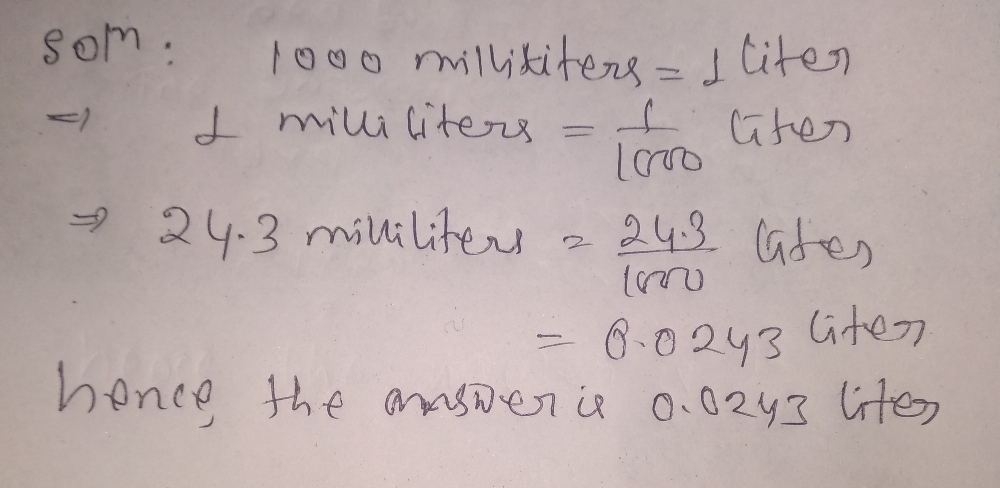 Soln: 1000 millikiters = 1 liter
⇒ 1 milli liters = 1/1000 liter
⇒ 24.3 milliliters = 24.3/1000 liter
= 0.0243 liter
hence, the answer is 0.0243 liter